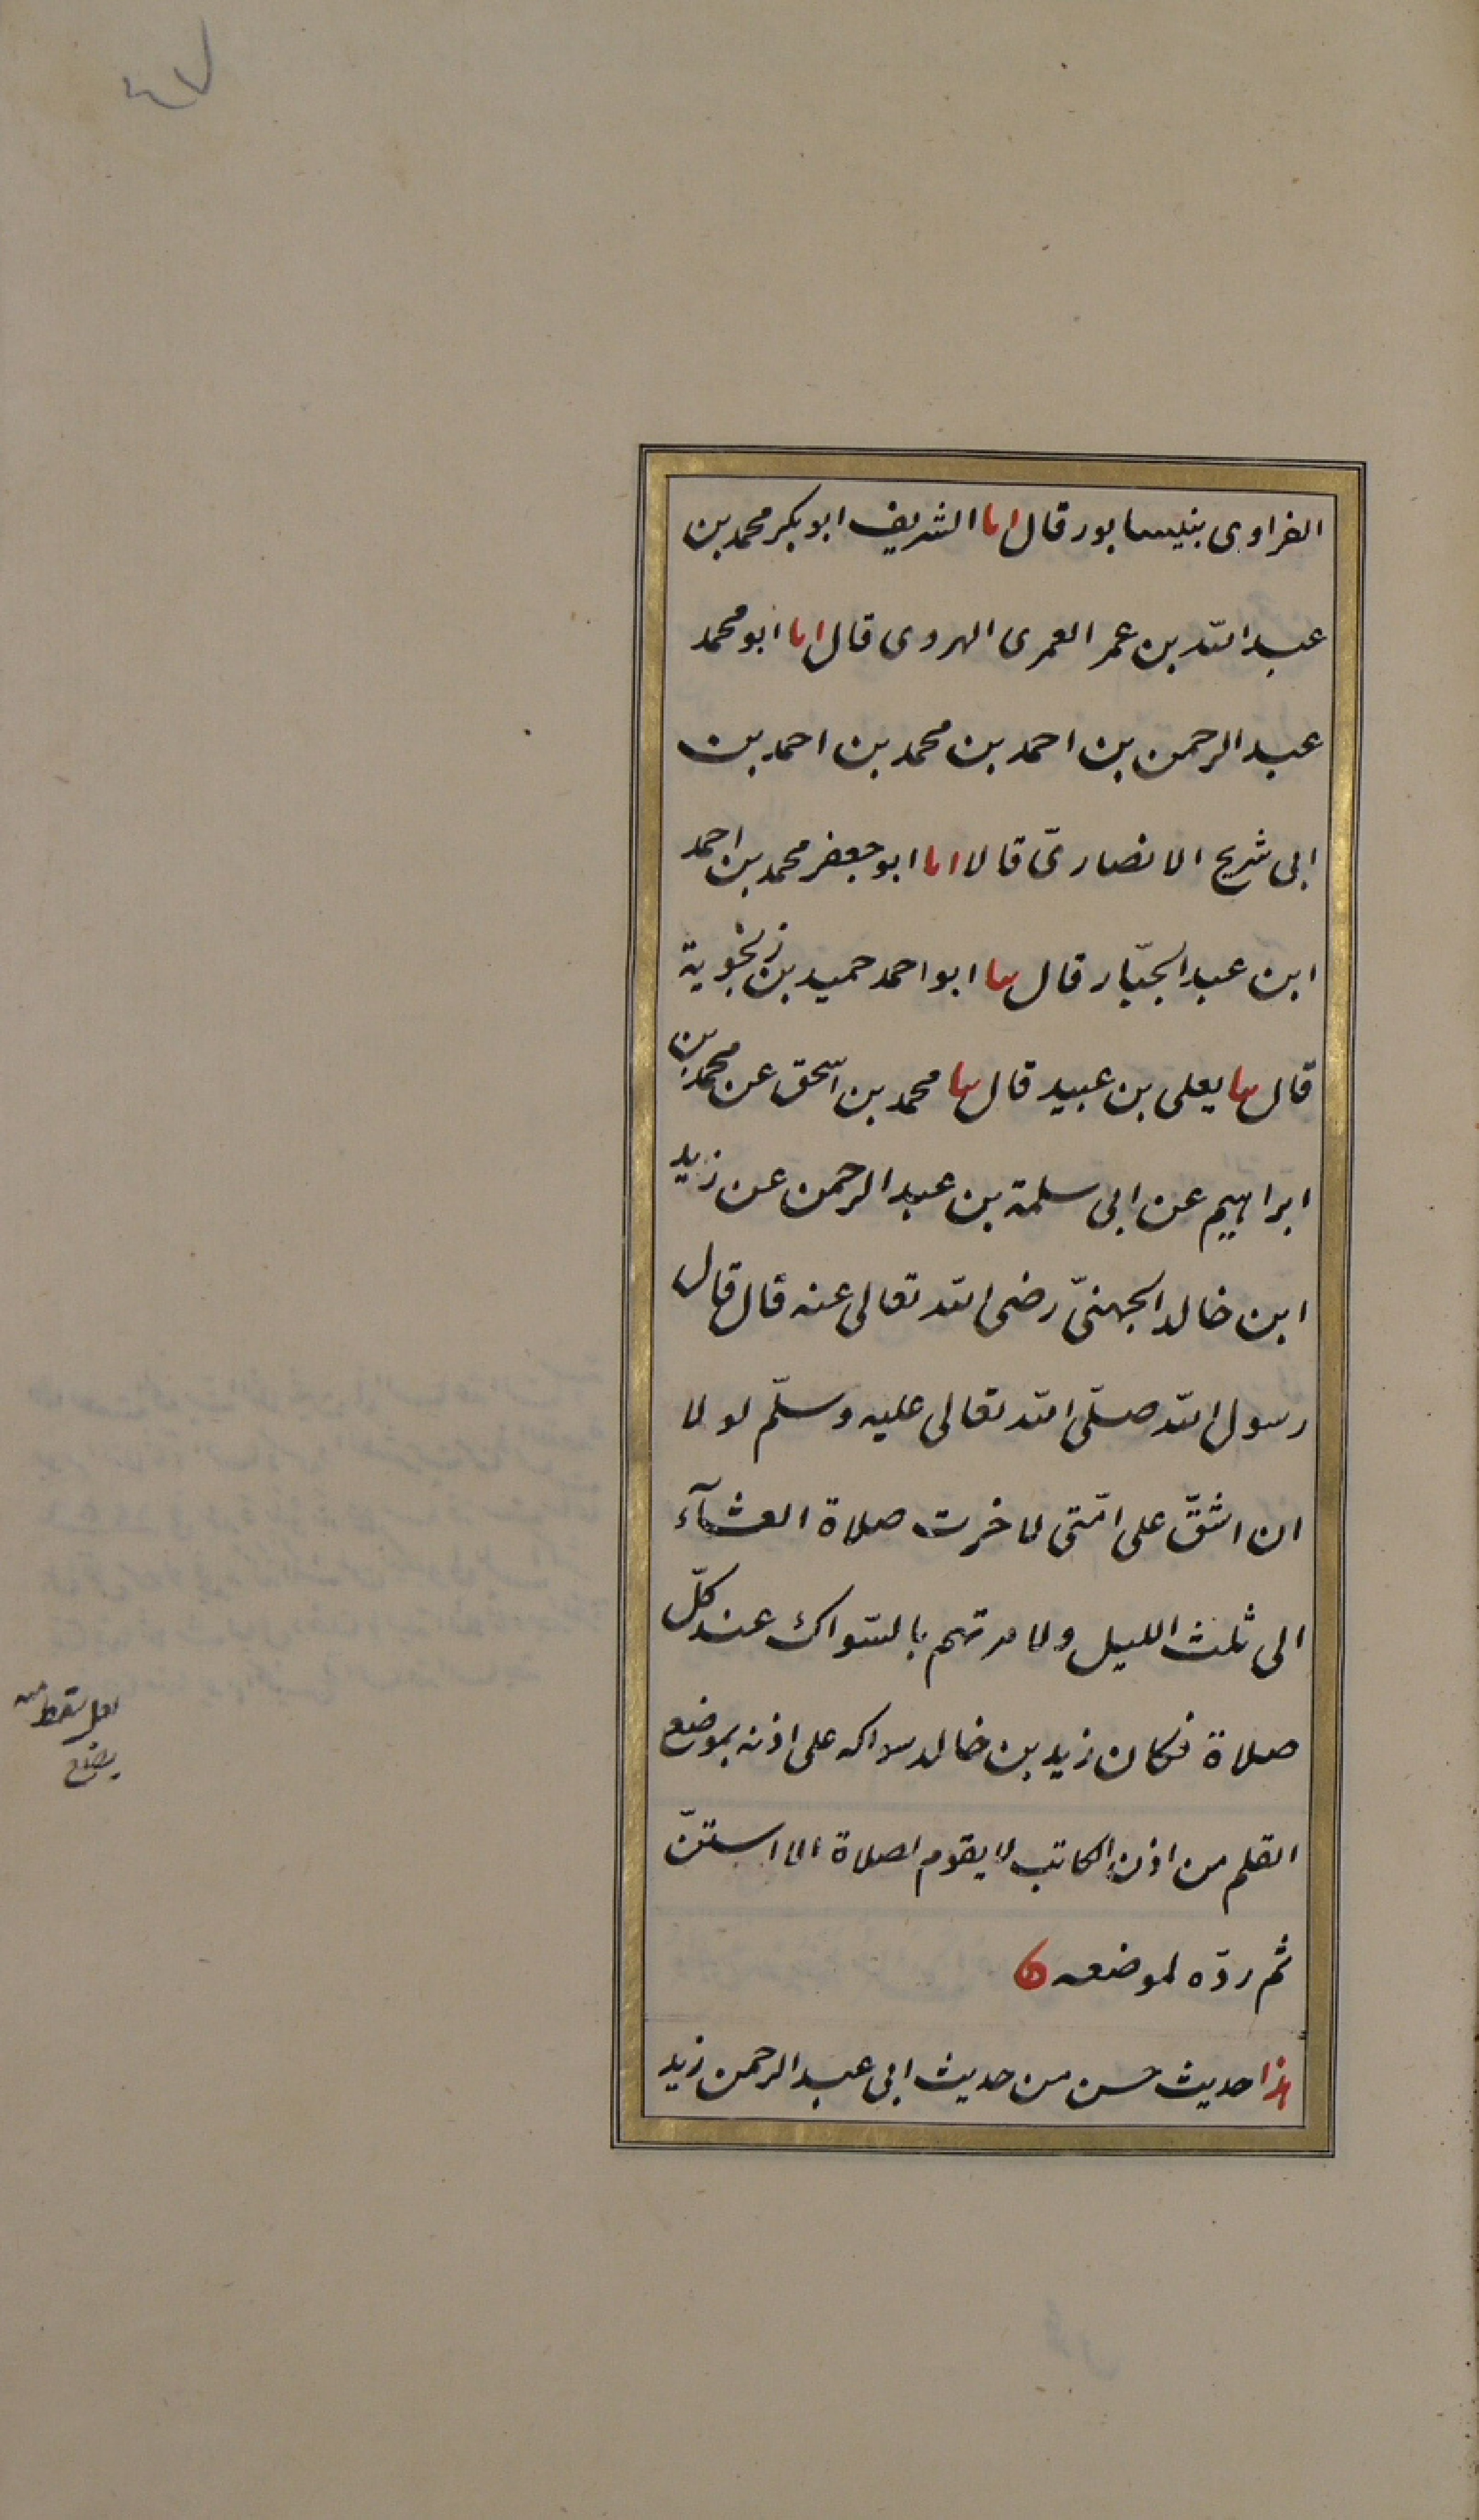 ٤٧
الفراوى بنيسابور قال انا الشريف ابو بكر محمد بن
عبد الله بن عمر العمرى الهروى قال انا ابو محمد
عبد الرحمن بن احمد بن محمد بن احمد بن
ابى شريح الانصارىّ قالا انا ابو جعفر محمد بن احمد
ابن عبد الجبّار قال ثنا ابو احمد حميد بن زنجوية
قال ثنا يعلى بن عبيد قال ثنا محمد بن اسحق عن محمد بن
ابراهيم عن ابى سلمة بن عبد الرحمن عن زيد
ابن خالد الجهنىّ رضى الله تعالى عنه قال قال
رسول الله صلّى الله تعالى عليه وسلّم لو لا
ان اشقّ على امّتى لاخرت صلاة العشآء
الى ثلث الليل ولامرتهم بالسّواك عند كلّ
صلاة فكان زيد بن خالد سواكه على اذنه بموضع
القلم من اذن الكاتب لا يقوم لصلاة الا استنّ
ثم ردّه لموضعه
هذا حديث حسن من حديث ابى عبد الرحمن زيد
لعل سقط منه
يضع